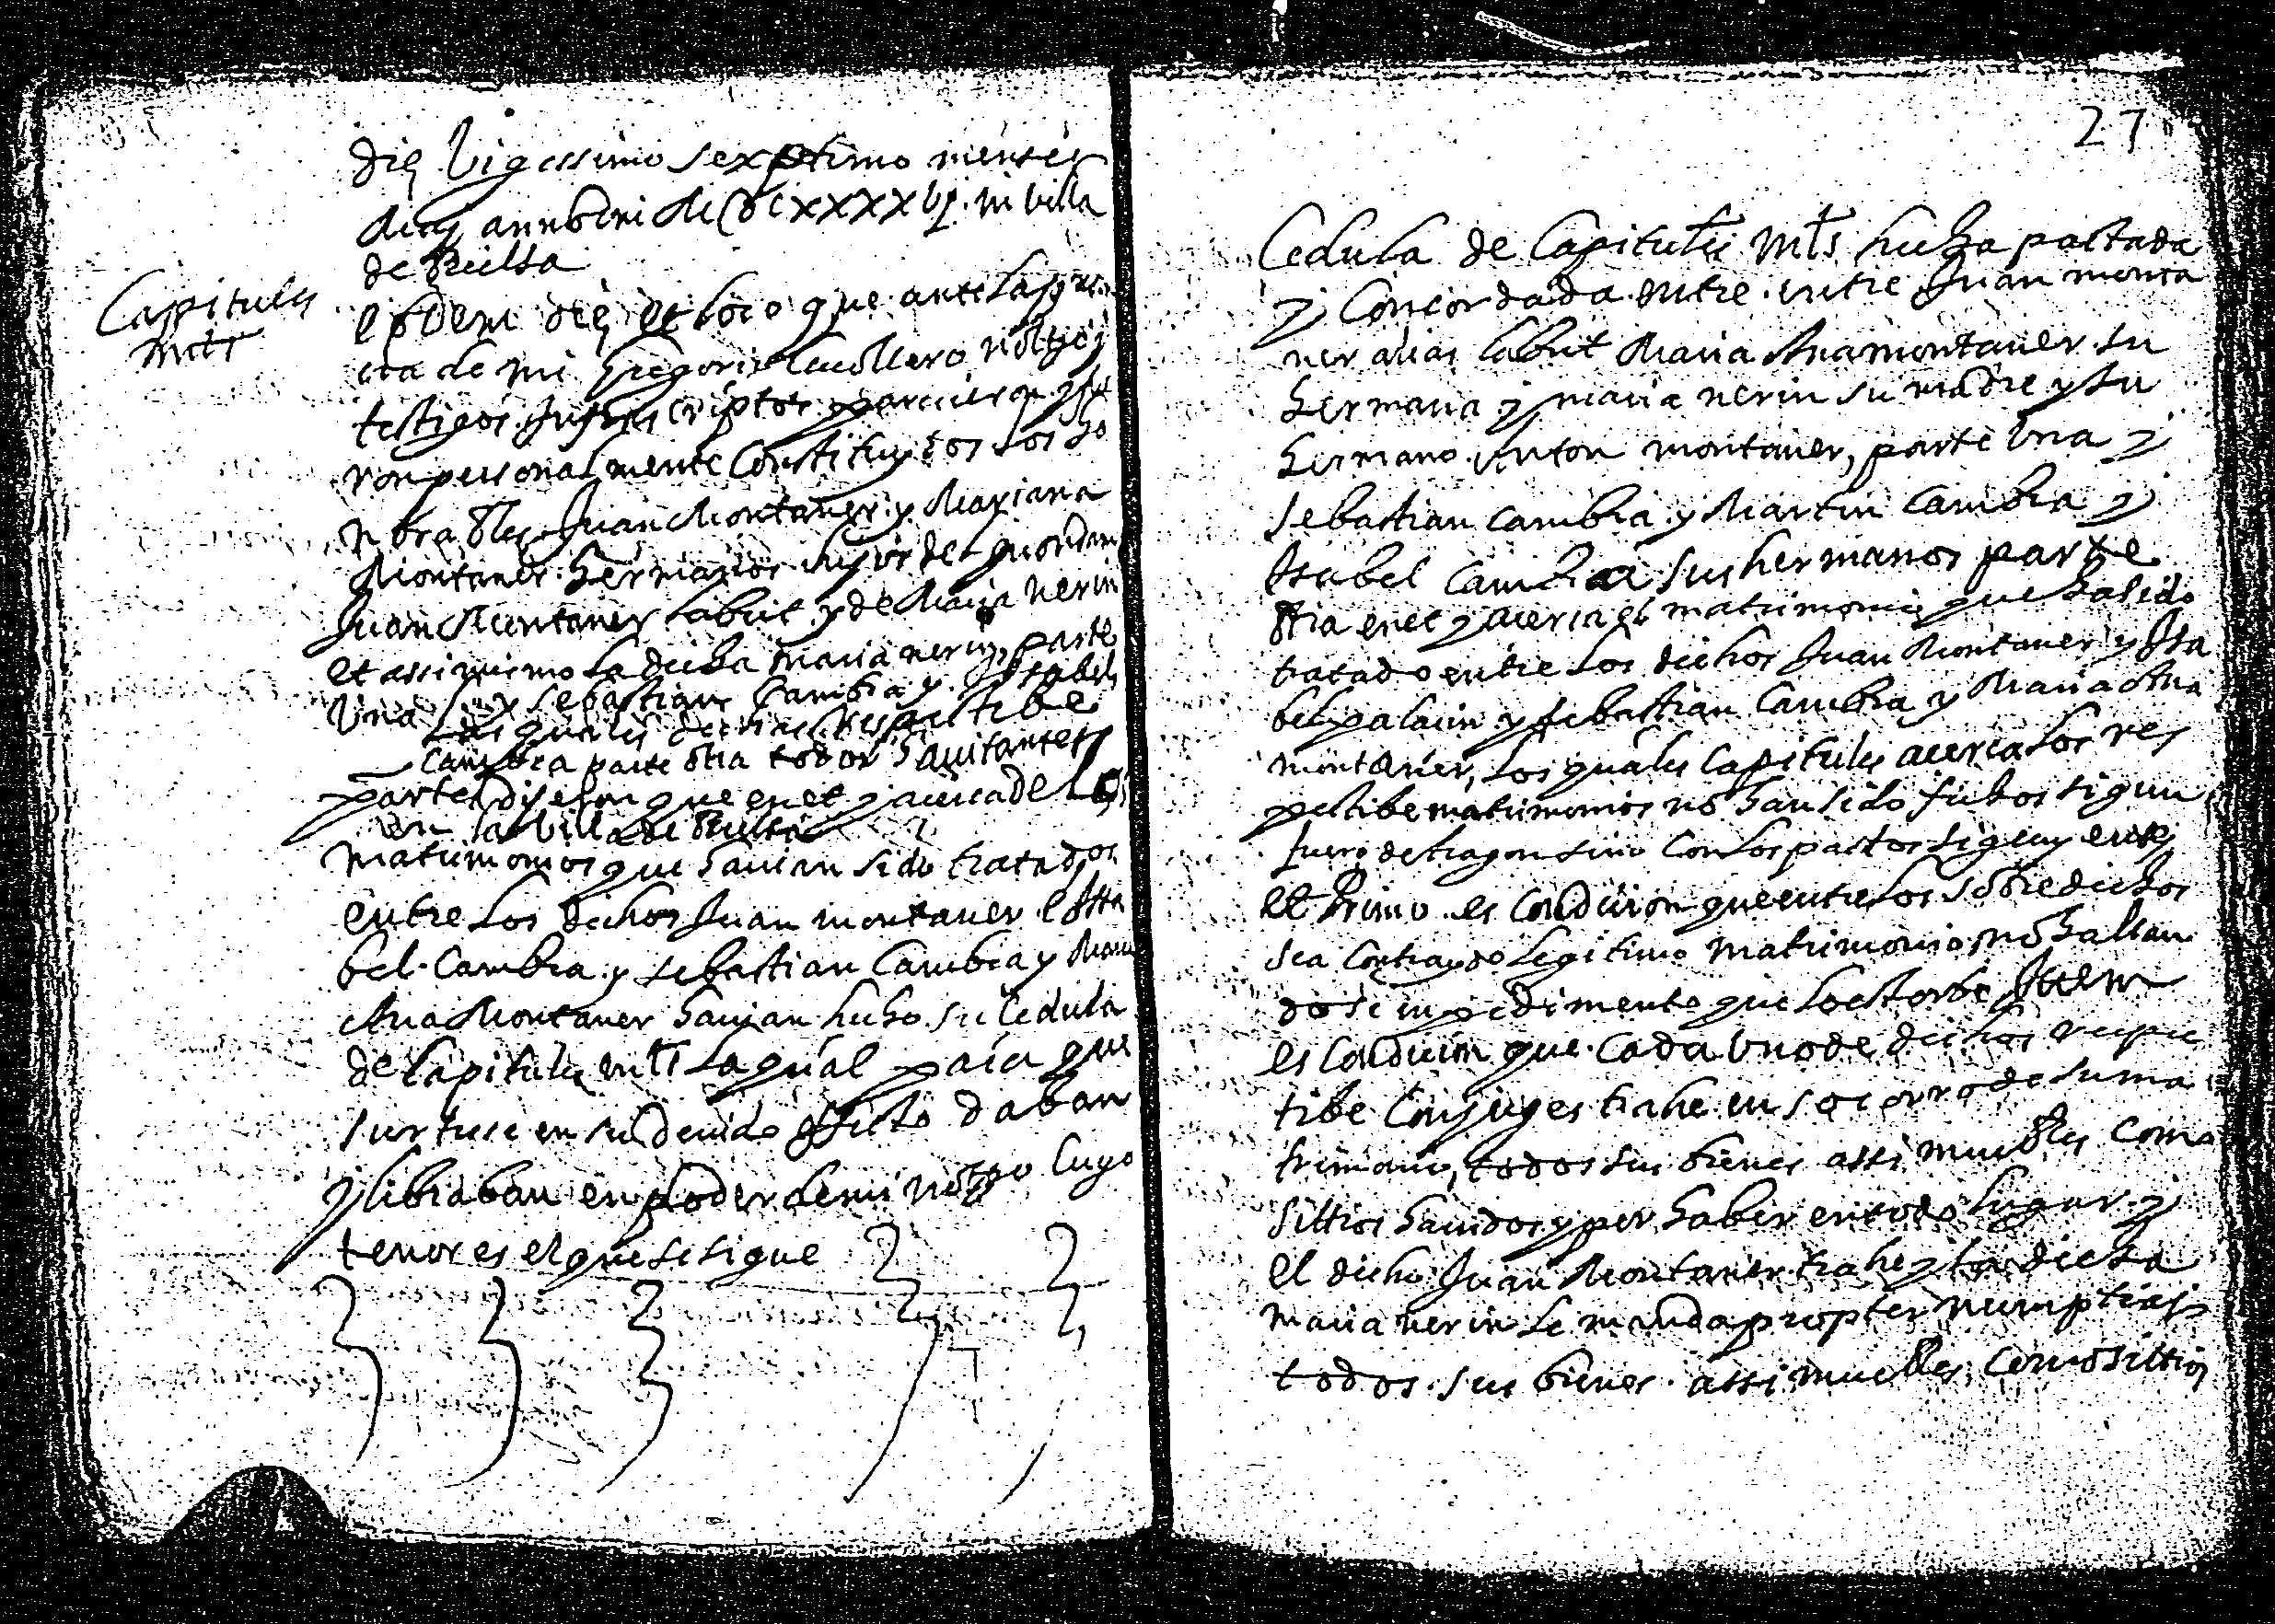 Capitules
mtˢ
die Vigessimo sexptimo mensis
Maij anno dñi MDCXXXXVJ. in villa
de Bielsa
eodem die et loco que ante la presen
cia de mi Gregorio not.º y
testigos infrascriptos parecieron y fue
ron personalmente Constituydos los ho
norables Juan Montaner y Mariana
Montaner hermanos hijos del quondam
Juan Montaner labut y de Maria nerin
et assimismo la dicha maria nerin, parte
Una y sebastian Cambra y Isabel
las quales dichas respectibe
Cambra parte otra todos havitantes
partes dijeron que en et y acerca de los
en la Villa de Bielsa
matrimonios que havian sido tratados
entre los dichos Juan montaner e Issa
bel Cambra y sebastian Cambra y Maria
Ana Montaner havian hecho su Cedula
de Capitules mtˢ la qual para que
surtiese en su devido effecto daban
y libraban en poder de mi not.º Cuyo
tenor es el que se sigue
27
Cedula de Capitules mtˢ hecha pactada
y Concordada entre entre Juan monta
ner alias labut Maria Ana montaner su
hermana y maria nerin su madre y su
hermano Anton montaner, parte Una y
sebastian cambra y Martin Cambra y
Isabel Cambra sus hermanos parte
otra en et y acerca el matrimonio que ha sido
tratado entre los dichos Juan Montaner y Isa
bel palacin y sebastian Cambra y Maria Ana
montaner, los quales Capitules acerca los res
pectibe matrimonios no han sido fechos sigun
fuero de Aragon sino Con los pactos siguientes
et Primo es Condicion que entre los sobredichos
sea Contraydo legitimo matrimonio no hallan
dose inpedimento que lo estorbe Item
es Condicion que cada Uno de dichos respec
tibe Conjuges trahe en socorro de su ma
trimonio, todos sus bienes assi muebles como
sittios havidos y por haber en todo lugar y
el dicho Juan Montaner trahe y la dicha
maria nerin le manda propter numptias
todos sus bienes assi muebles como sittios